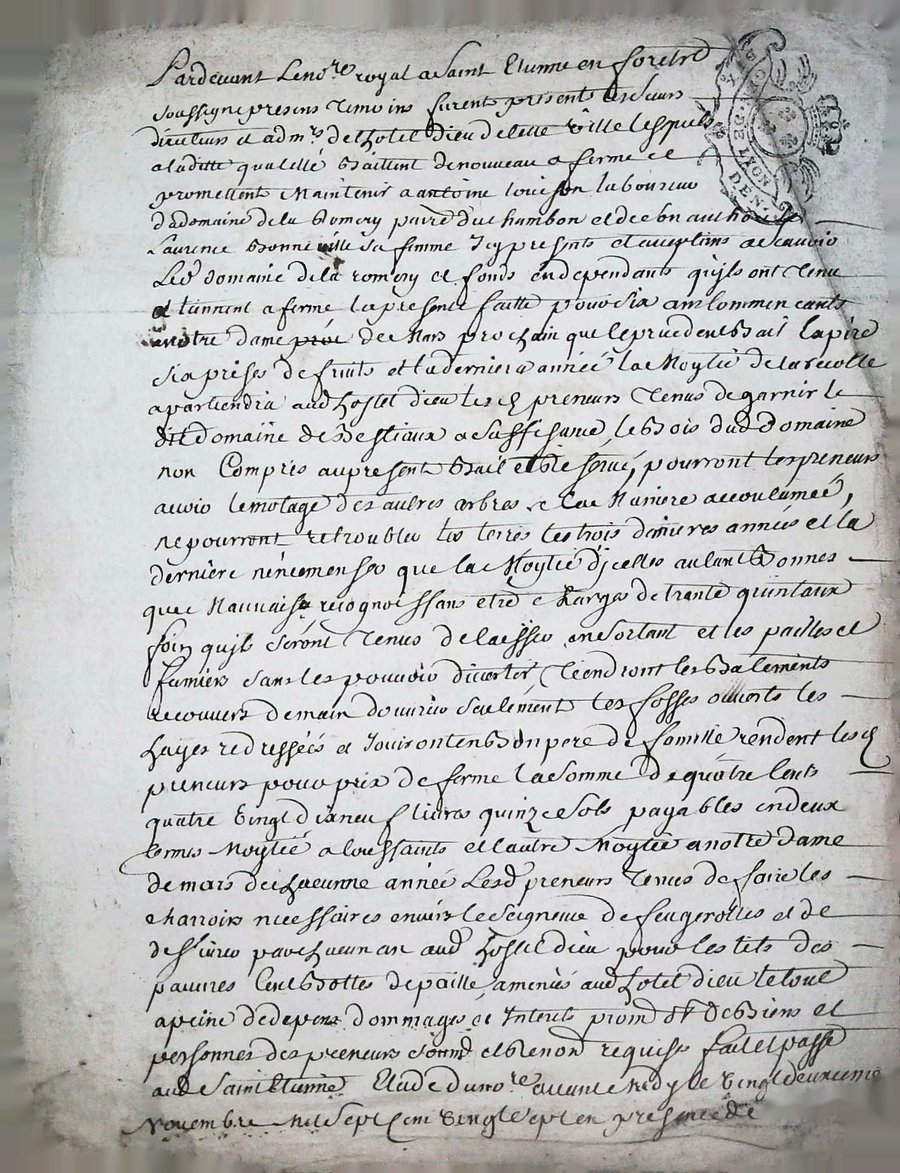 Pardevant Leno.re royal a Saint Etienne en foretz
soussigne presens temoins furent presents les sieurs
directeurs et adm.rs de lhotel dieu de cette ville lesquels
a laditte qualité Baillent denouveau a ferme et
promettent Maintenir a antoine loison laboureur
du domaine de la Romery du Chambon et de son authorité
Laurence Bonneville sa femme Icy presents et acceptans ascavoir
Led domaine de la romery et fonds endependants quils ont tenu
et tiennent a ferme la presente faitte pour six ans commencants
a notre dame de Mars prochain que le precedent Bail
six prises de fruits et la derniere année la Moytié de la recolte
apartiendra aud hostel dieu les d preneurs tenus de garnir le
dit domaine de Bestiaux a suffisance, le Bois dud domaine
non Compris au present Bail et reservé, pourront les preneurs
avoir lemotage des autres arbres a la Maniere accoutumée,
ne pourront retroubler les terres les trois dernieres années et la
derniere nensemenser que la Moytié dicelles autant Bonnes
que Mauvaise recognoissans etre Chargés de trante quintaux
foin quils seront tenus de laisser en sortant et les pailles et
fumiers sans les pouvoir divertir, tiendront les Batements
recouverts demain douvrier seulement les fosses ouverts les
hayes redressées et Jouiront en Bon pere de famille rendent les d
preneurs pour prix de ferme la somme de quatre Cents
quatre Vingt dixneuf livres quinze sols payables en deux
termes Moytié a toussaints et lautre Moytié a notre dame
de mars de chacune année Lesd preneurs tenus de faire les
charrois necessaires envers le seigneur de feugerolles et de
delivrer par chacun an aud hostel dieu pour les lits des
pauvres Cent Bottes de paille, amenés aud hotel dieu le tout
a peine de depens dommages et Interets de Biens et
personnes des preneurs et Renon requise fait et passé
aud Saint Etienne Etude du no.re avant Midy le Vingt deuxieme
Novembre Mil sept Cent Vingt sept en presence de
LYON
DEN.